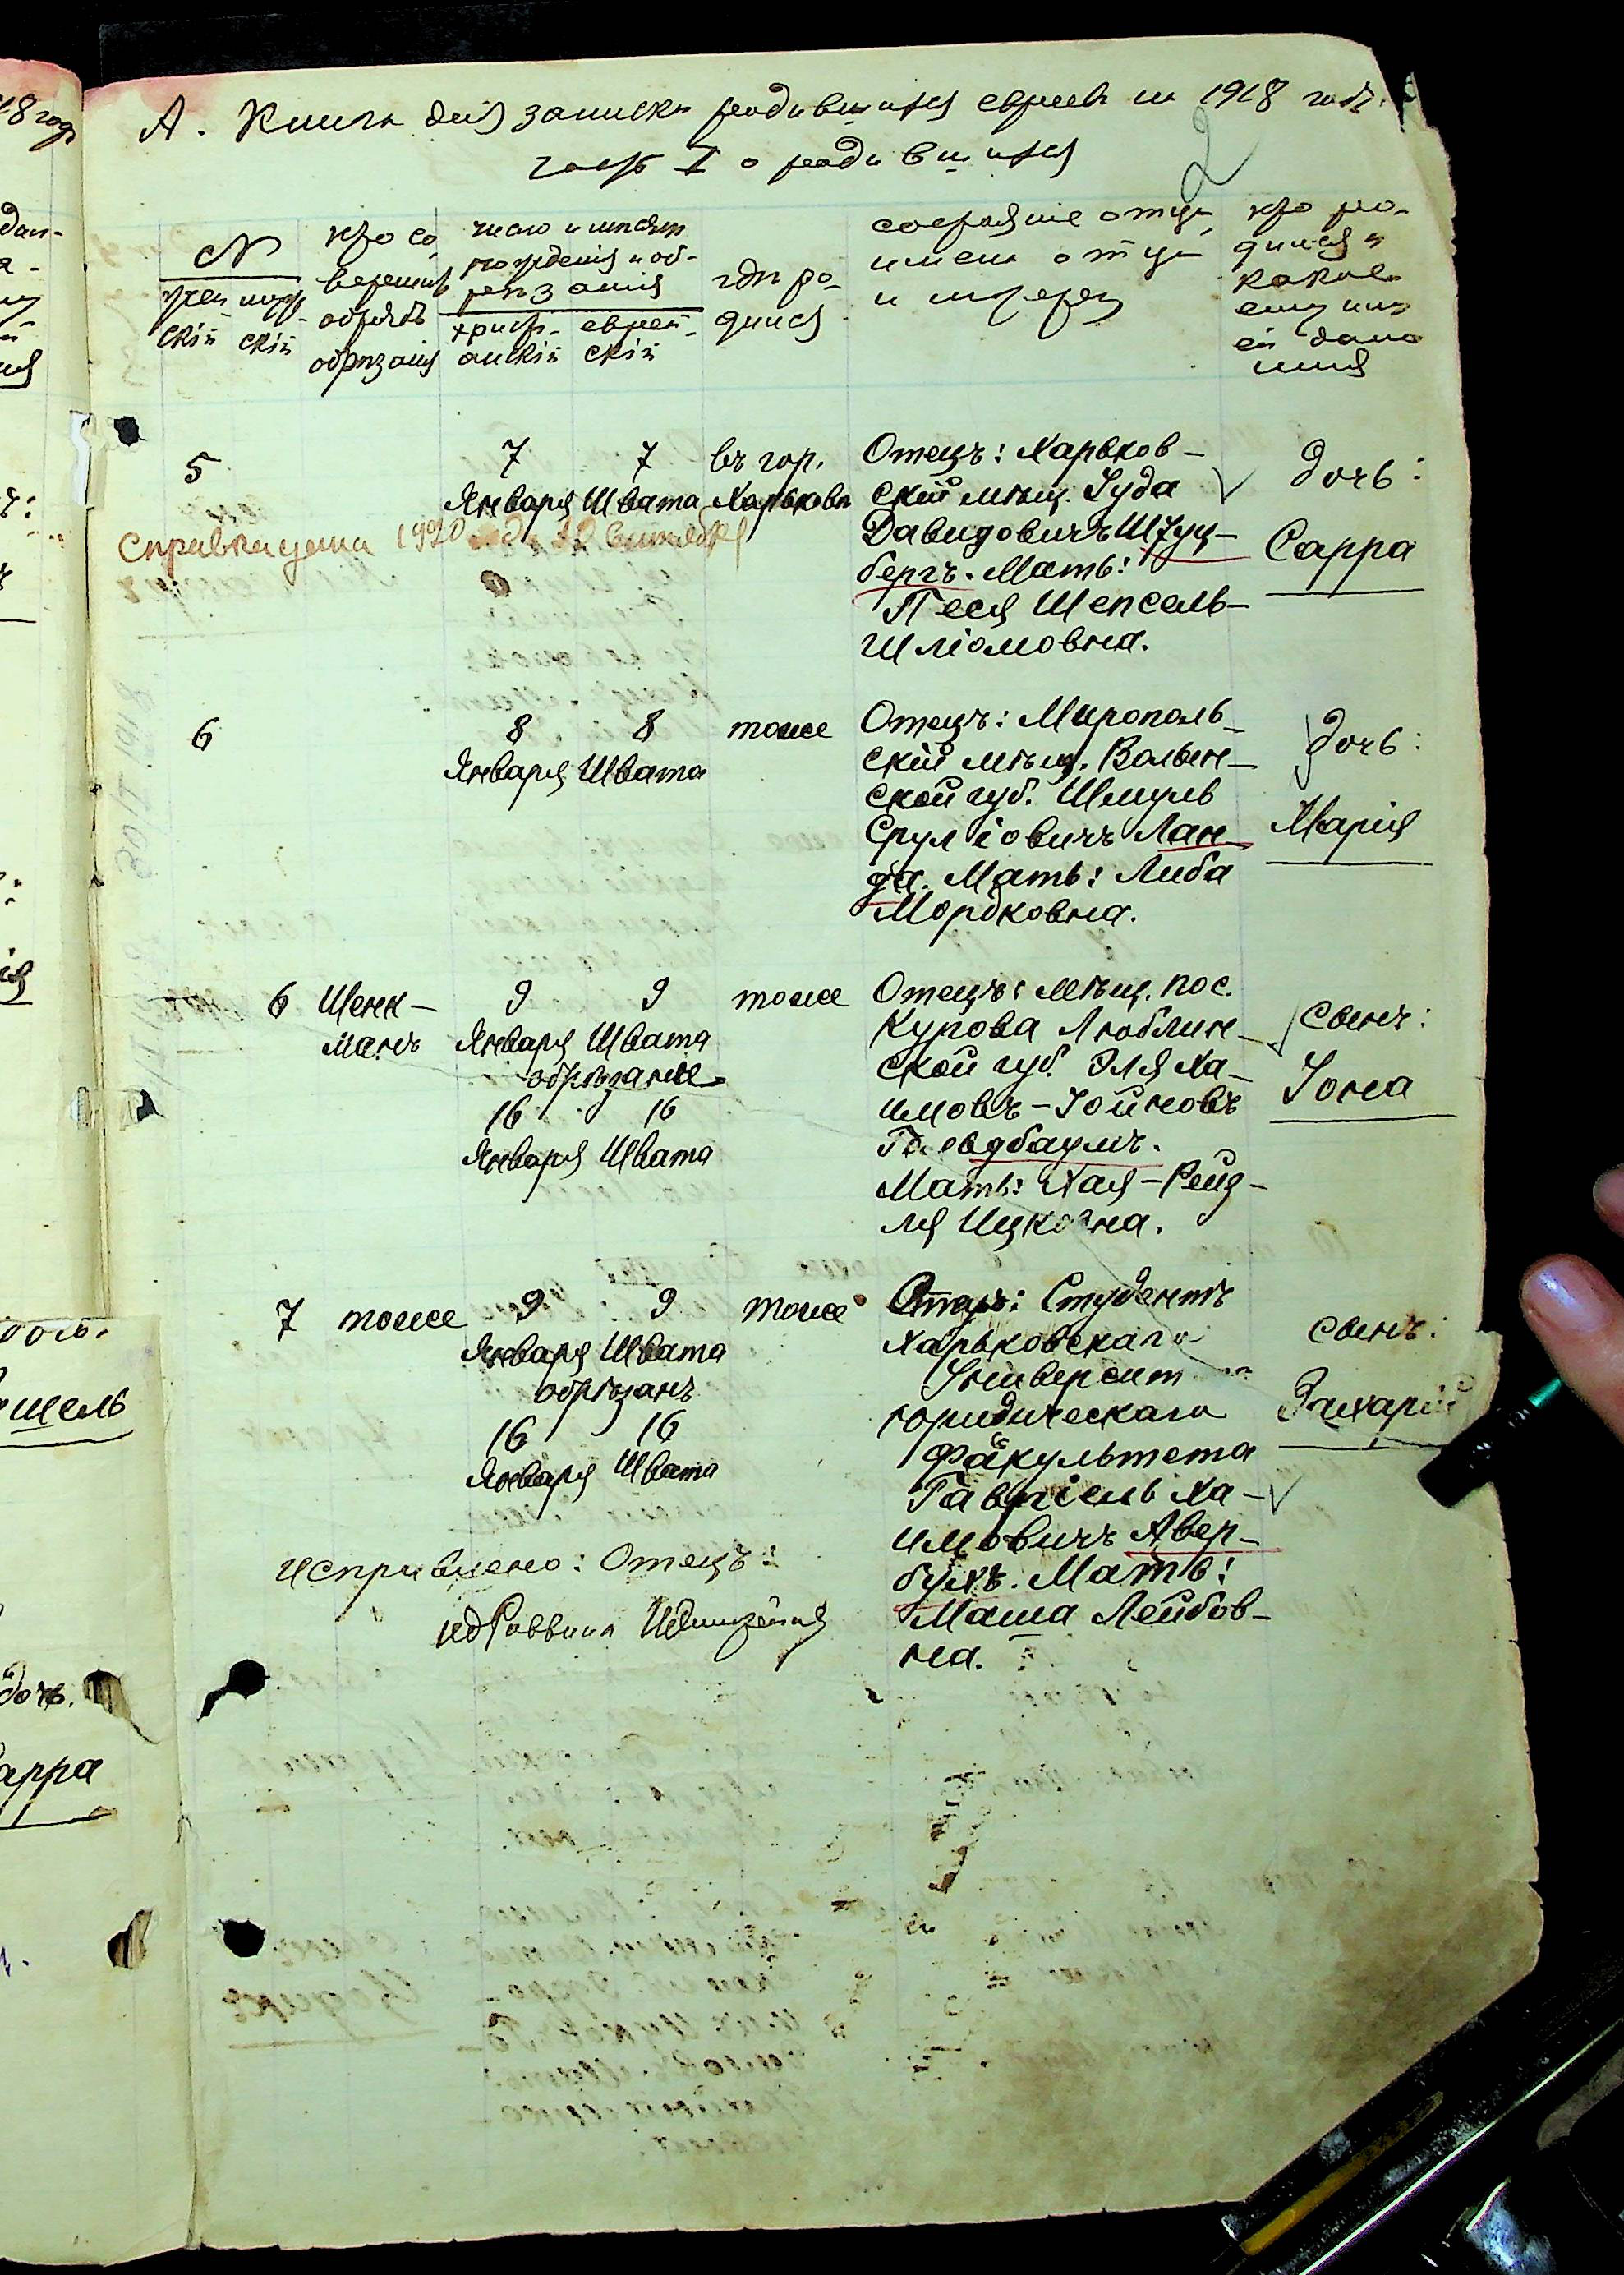 А. Книга для записки родившихся евреевъ на 1918 годъ.
2
часть I о родившихся
№
женскій мужскій
кто совершилъ обрядъ обрѣзанія
число и мѣсяцъ рожденія и обрѣзанія
христіанскій еврейскій
гдѣ родился
состояніе отца, имена отца и матери
кто родился и какое ему или ей дано имя
5
7 7 въ гор.
Января Швата Харьковѣ
Справка дана 1920
Отецъ: Харьков-
скій мѣщ. Іуда
Давидовичъ Штуц-
бергъ. Мать:
Песя Шепсель-
Шліомовна.
дочь:
Сарра
6
8 8 тоже
Января Швата
Отецъ: Мирополь-
скій мѣщ. Волын-
ской губ. Шмуль
Сруліовичъ Лан-
да. Мать: Либа
Мордковна.
дочь:
Марія
6 Шенк-
манъ
9 9 тоже
Января Швата
обрѣзаніе
16 16
Января Швата
Отецъ: мѣщ. пос.
Курова Люблин-
ской губ. Эля Ха-
имовъ-Іойновъ
Гольдбаумъ.
Мать: Хая-Рейз-
ля Ицковна.
сынъ:
Іона
7 тоже 9 9 тоже
Января Швата
обрѣзанъ
16 16
Января Швата
Отецъ: Студентъ
Харьковскаго
Университ
юридическаго
факультета
Гавріель Ха-
имовичъ Авер-
бухъ. Мать:
Маша Лейбов-
на.
сынъ:
Захарій
исправлено: Отецъ:
ид Раввина